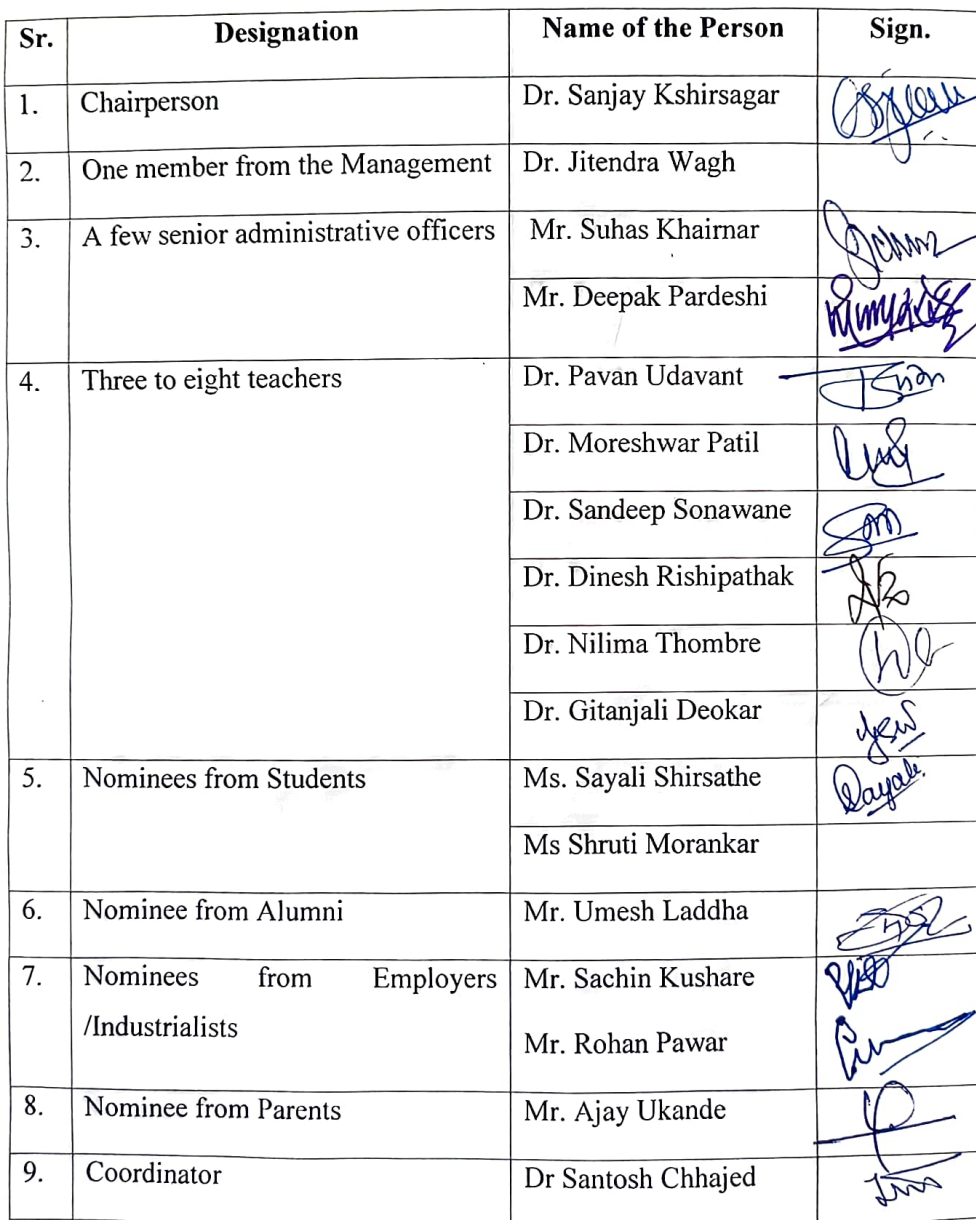 Sr. Designation Name of the Person Sign.
1. Chairperson Dr. Sanjay Kshirsagar
2. One member from the Management Dr. Jitendra Wagh
3. A few senior administrative officers Mr. Suhas Khairnar
Mr. Deepak Pardeshi
4. Three to eight teachers Dr. Pavan Udavant
Dr. Moreshwar Patil
Dr. Sandeep Sonawane
Dr. Dinesh Rishipathak
Dr. Nilima Thombre
Dr. Gitanjali Deokar
5. Nominees from Students Ms. Sayali Shirsathe Sayali
Ms Shruti Morankar
6. Nominee from Alumni Mr. Umesh Laddha
7. Nominees from Employers Mr. Sachin Kushare
/Industrialists Mr. Rohan Pawar
8. Nominee from Parents Mr. Ajay Ukande
9. Coordinator Dr Santosh Chhajed